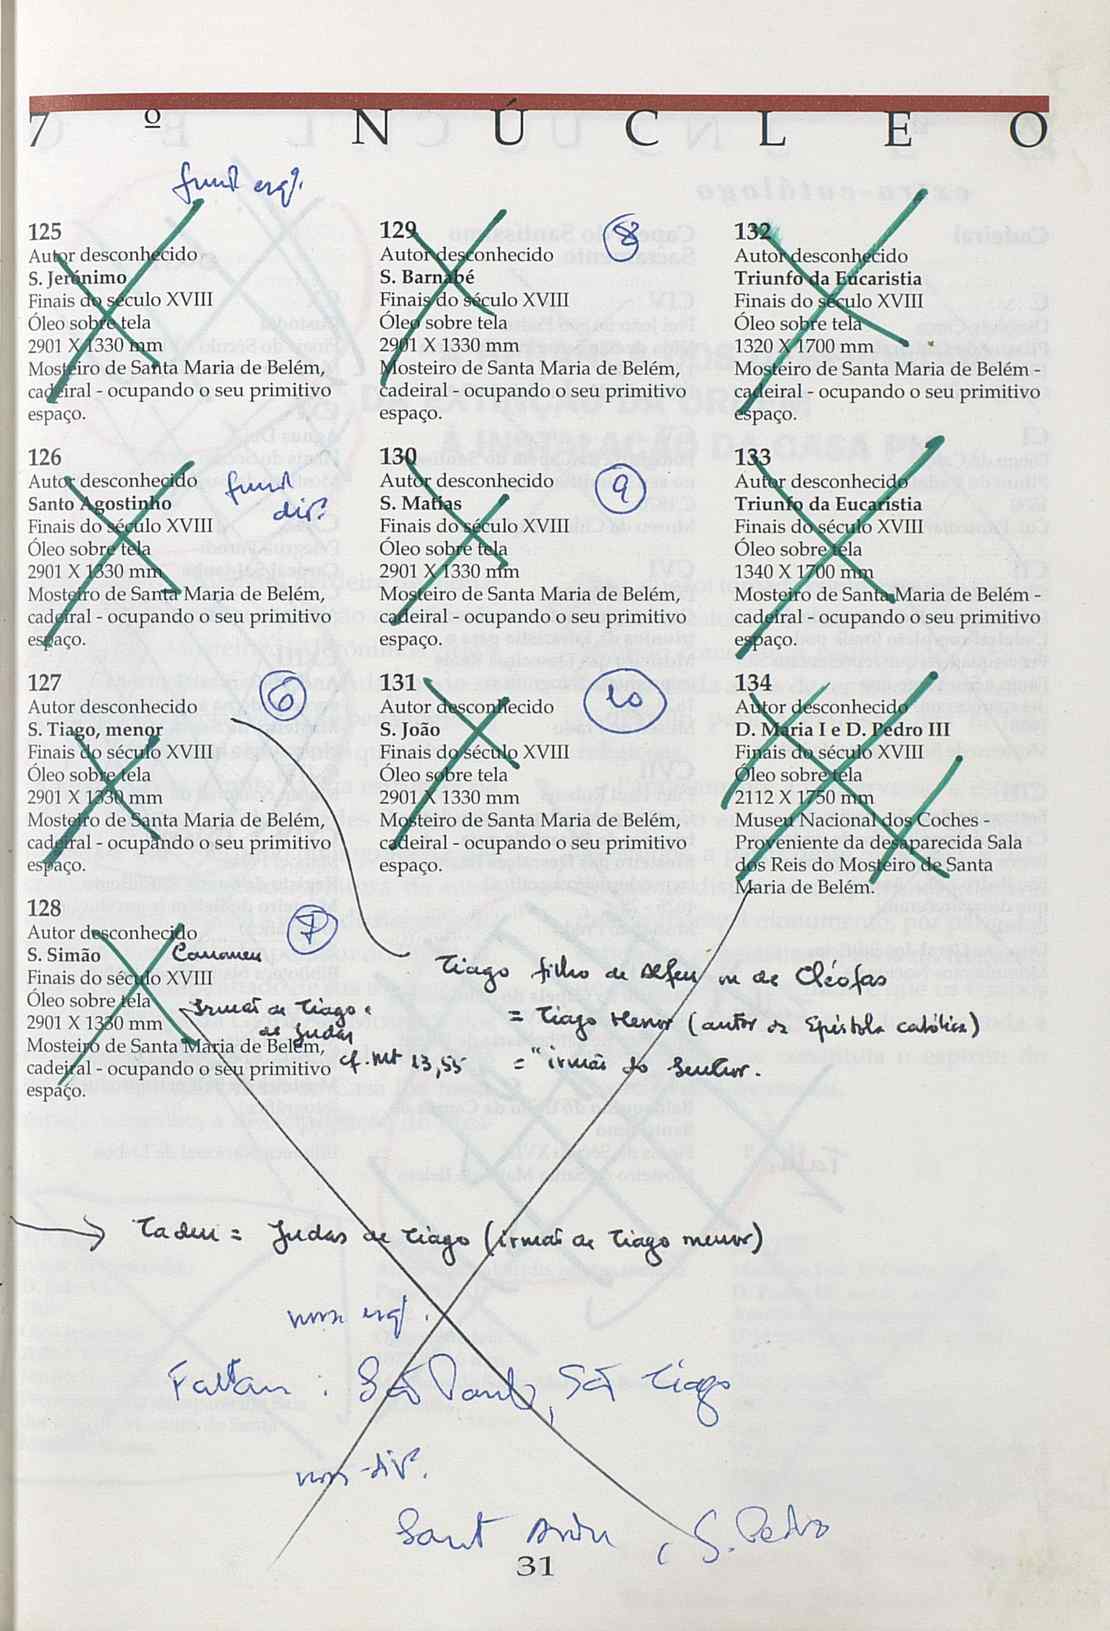 7º NÚCLEO
125
Autor desconhecido
S. Jerónimo
Finais do século XVIII
Óleo sobre tela
2901 X 1330 mm
Mosteiro de Santa Maria de Belém,
cadeiral - ocupando o seu primitivo
espaço.
126
Autor desconhecido
Santo Agostinho
Finais do século XVIII
Óleo sobre tela
2901 X 1330 mm
Mosteiro de Santa Maria de Belém,
cadeiral - ocupando o seu primitivo
espaço.
127
6
Autor desconhecido
S. Tiago, menor
Finais do século XVIII
Óleo sobre tela
2901 X 1330 mm
Mosteiro de Santa Maria de Belém,
cadeiral - ocupando o seu primitivo
espaço.
128
7
Autor desconhecido
S. Simão Cananeu
Finais do século XVIII
Óleo sobre tela
irmão de Tiago e
2901 X 1330 mm
de Judas
Mosteiro de Santa Maria de Belém,
cf. Mt 13,55
cadeiral - ocupando o seu primitivo
espaço.
129
8
Autor desconhecido
S. Barnabé
Finais do século XVIII
Óleo sobre tela
2901 X 1330 mm
Mosteiro de Santa Maria de Belém,
cadeiral - ocupando o seu primitivo
espaço.
130
9
Autor desconhecido
S. Matias
Finais do século XVIII
Óleo sobre tela
2901 X 1330 mm
Mosteiro de Santa Maria de Belém,
cadeiral - ocupando o seu primitivo
espaço.
131
10
Autor desconhecido
S. João
Finais do século XVIII
Óleo sobre tela
2901 X 1330 mm
Mosteiro de Santa Maria de Belém,
cadeiral - ocupando o seu primitivo
espaço.
132
Autor desconhecido
Triunfo da Eucaristia
Finais do século XVIII
Óleo sobre tela
1320 X 1700 mm
Mosteiro de Santa Maria de Belém -
cadeiral - ocupando o seu primitivo
espaço.
133
Autor desconhecido
Triunfo da Eucaristia
Finais do século XVIII
Óleo sobre tela
1340 X 1700 mm
Mosteiro de Santa Maria de Belém -
cadeiral - ocupando o seu primitivo
espaço.
134
Autor desconhecido
D. Maria I e D. Pedro III
Finais do século XVIII
Óleo sobre tela
2112 X 1750 mm
Museu Nacional dos Coches -
Proveniente da desaparecida Sala
dos Reis do Mosteiro de Santa
Maria de Belém.
Tiago filho de Alfeu ou de Cléofas
= Tiago Menor (autor da Epístola católica)
= "irmão do Senhor.
Tadeu = Judas de Tiago (irmão de Tiago menor)
Faltam : São Paulo, São Tiago
Sant André, S. Pedro
31